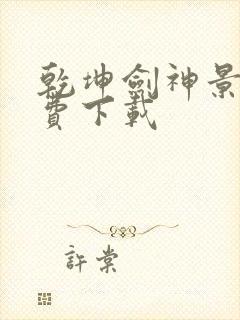 乾坤劍神景
費下載
許棠